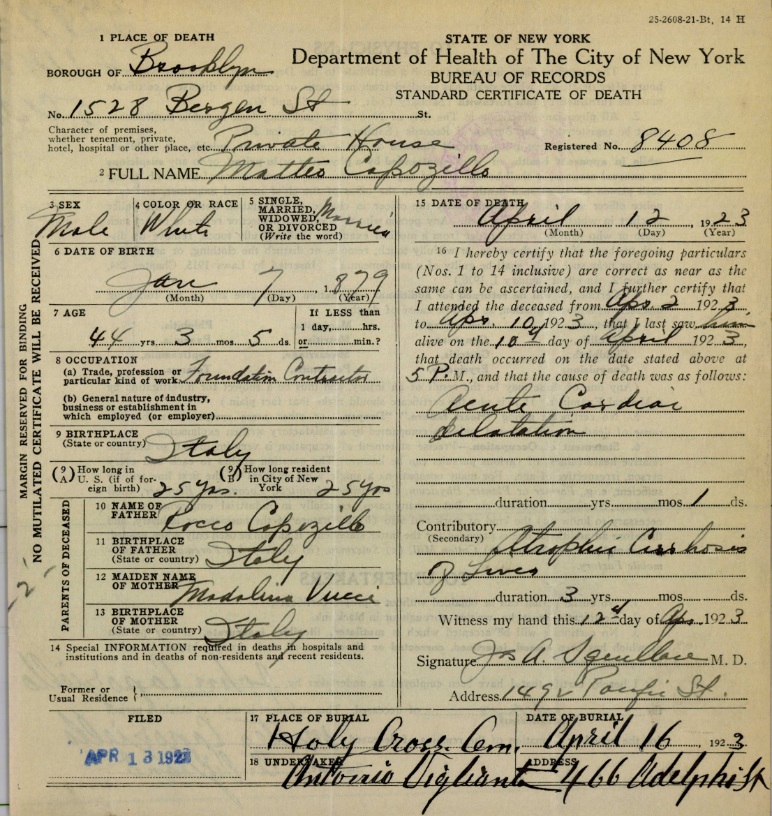 25-2608-21-Bt, 14 H
1 PLACE OF DEATH
STATE OF NEW YORK
Department of Health of The City of New York
BUREAU OF RECORDS
STANDARD CERTIFICATE OF DEATH
BOROUGH OF Brooklyn
No. 1528 Bergen St St.
Character of premises, whether tenement, private, hotel, hospital or other place, etc. Private House
Registered No. 8408
2 FULL NAME Matteo Capozillo
MARGIN RESERVED FOR BINDING
NO MUTILATED CERTIFICATE WILL BE RECEIVED
3 SEX Male
4 COLOR OR RACE White
5 SINGLE, MARRIED, WIDOWED, OR DIVORCED (Write the word) Married
6 DATE OF BIRTH
Jan 7 1879
(Month) (Day) (Year)
7 AGE
44 yrs. 3 mos. 5 ds.
If LESS than 1 day, hrs. or min.?
8 OCCUPATION
(a) Trade, profession or particular kind of work Foundation Contractor
(b) General nature of industry, business or establishment in which employed (or employer)
9 BIRTHPLACE (State or country) Italy
(9A) How long in U. S. (if of foreign birth) 25 yrs.
(9B) How long resident in City of New York 25 yrs
PARENTS OF DECEASED
10 NAME OF FATHER Rocco Capozillo
11 BIRTHPLACE OF FATHER (State or country) Italy
12 MAIDEN NAME OF MOTHER Madalina Vucci
13 BIRTHPLACE OF MOTHER (State or country) Italy
14 Special INFORMATION required in deaths in hospitals and institutions and in deaths of non-residents and recent residents.
Former or Usual Residence
15 DATE OF DEATH
April 12 1923
(Month) (Day) (Year)
16 I hereby certify that the foregoing particulars
(Nos. 1 to 14 inclusive) are correct as near as the
same can be ascertained, and I further certify that
I attended the deceased from Apr 2 1923,
to Apr 10, 1923, that I last saw him
alive on the 10th day of April 1923,
that death occurred on the date stated above at
5 P.M., and that the cause of death was as follows:
Acute Cardiac
dilatation
duration yrs. mos. 1 ds.
Contributory (Secondary) Atrophic Cirrhosis
of Liver
duration 3 yrs. mos. ds.
Witness my hand this 12th day of Apr 1923
Signature Jos A. M. D.
Address 1492 Pacific St.
FILED
APR 13 1923
17 PLACE OF BURIAL
Holy Cross Cem.
DATE OF BURIAL
April 16 1923
18 UNDERTAKER
Antonio Vigliante
ADDRESS
466 Adelphi St